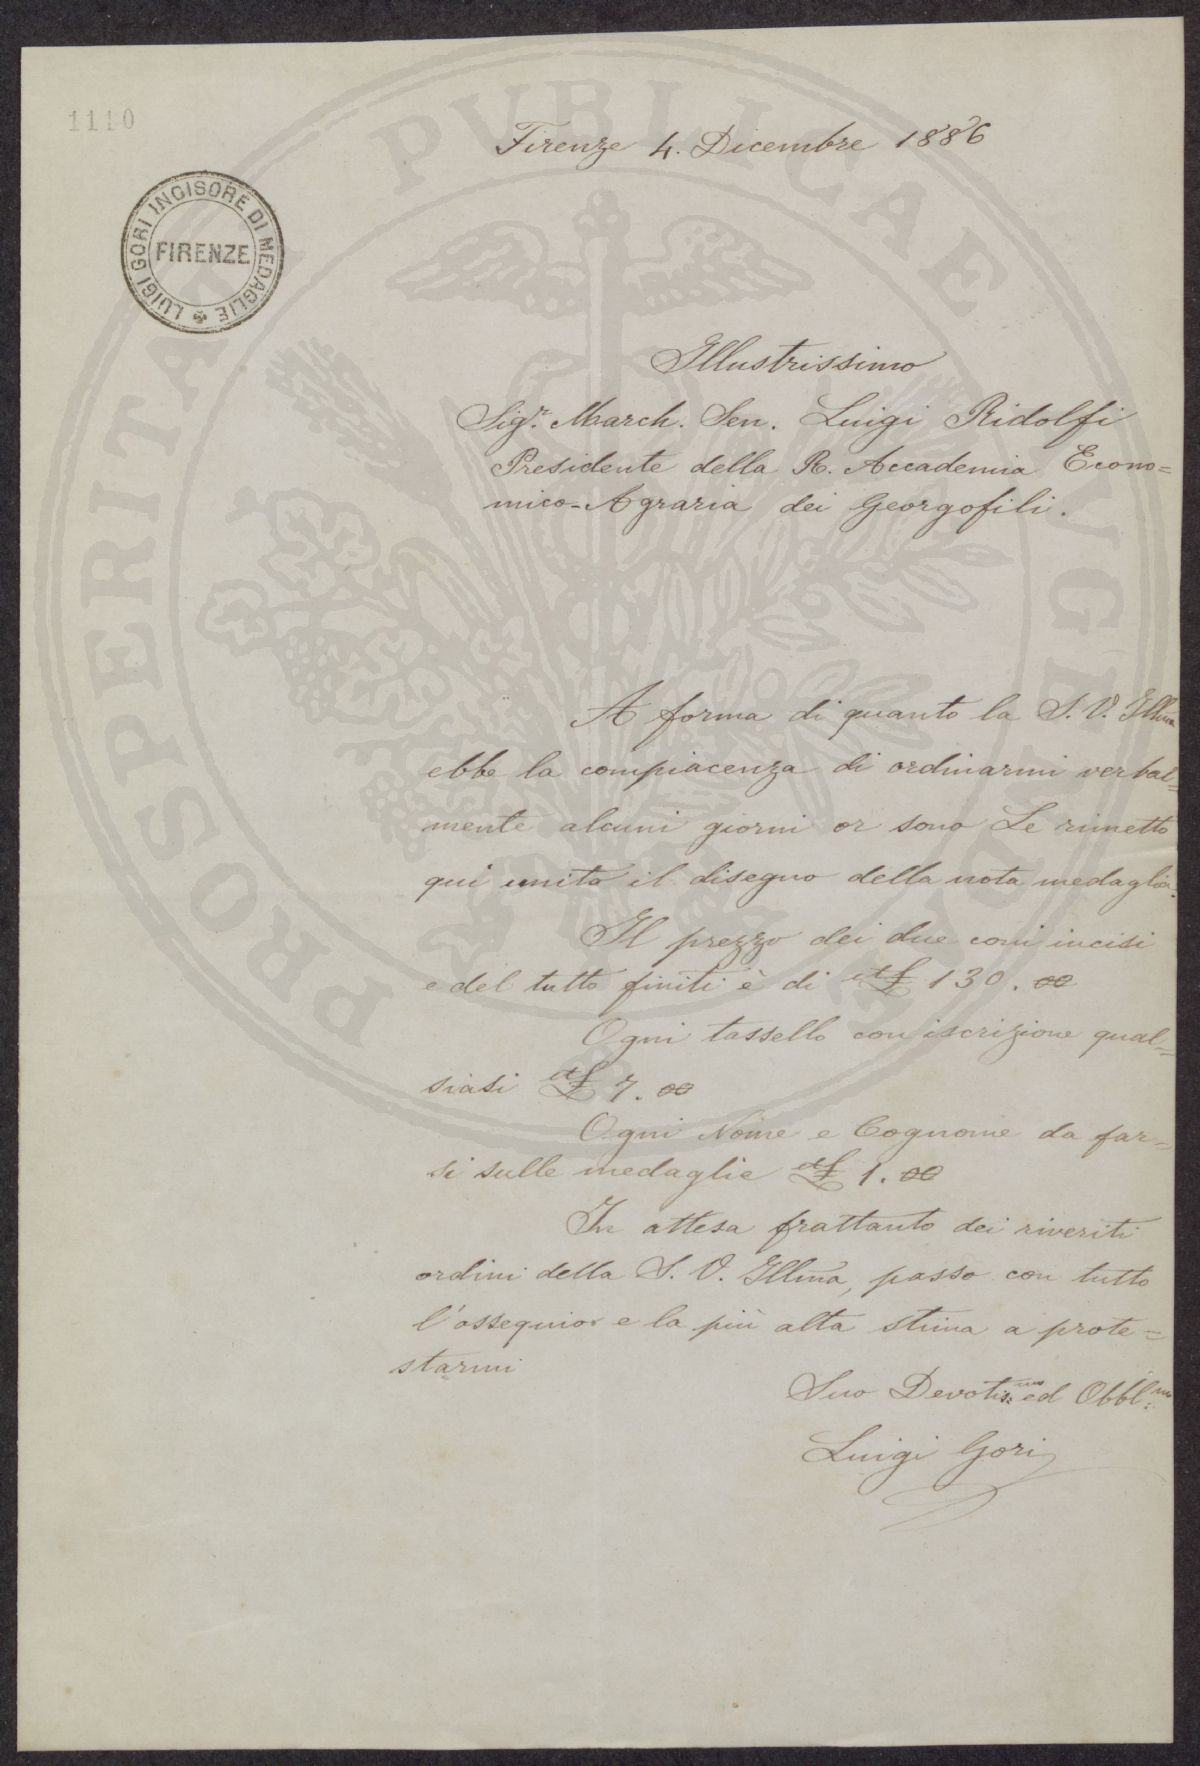 1110
Firenze 4. Dicembre 1886
LUIGI GORI INCISORE DI MEDAGLIE
FIRENZE
PROSPERITATI PUBLICAE AUGENDAE
Illustrissimo
Sigr. March. Sen. Luigi Ridolfi
Presidente della R. Accademia Econo=
mico-Agraria dei Georgofili.
A forma di quanto la S. V. Illma
ebbe la compiacenza di ordinarmi verbal=
mente alcuni giorni or sono Le rimetto
qui unito il disegno della nota medaglia.
Il prezzo dei due coni incisi
e del tutto finiti è di it£ 130.00
Ogni tassello con iscrizione qual=
siasi it£ 7.00
Ogni Nome e Cognome da far=
si sulle medaglie it£ 1.00
In attesa frattanto dei riveriti
ordini della S. V. Illma, passo con tutto
l'ossequio e la più alta stima a prote=
starmi
Suo Devotis:mo ed Obbl:mo
Luigi Gori